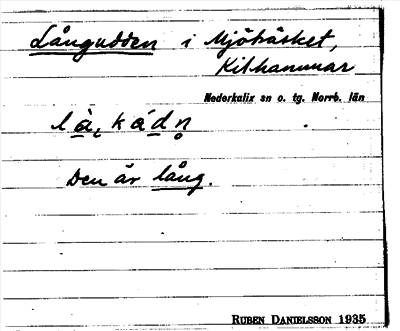 Långudden i Mjöträsket,
Kilhammar
Nederkalix sn o. tg. Norrb. län
Den är lång.
RUBEN DANIELSSON 1935